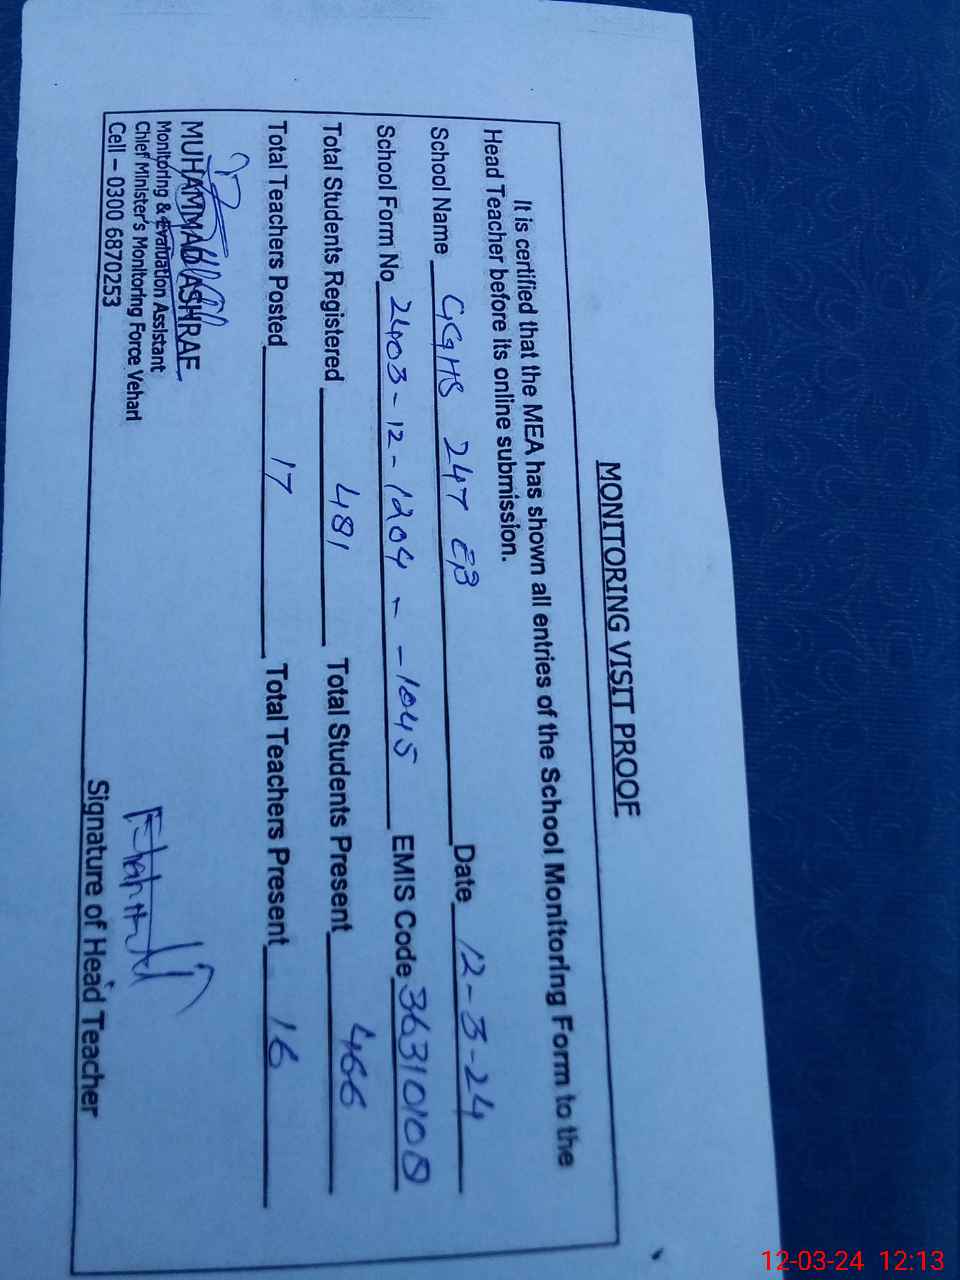 MONITORING VISIT PROOF
It is certified that the MEA has shown all entries of the School Monitoring Form to the
Head Teacher before its online submission.
School Name GGHS 247 EB Date 12-3-24
School Form No 2403-12-1204 - -1045 EMIS Code 36310108
Total Students Registered 481 Total Students Present 466
Total Teachers Posted 17 Total Teachers Present 16
MUHAMMAD ASHRAF
Monitoring & Evaluation Assistant
Chief Minister's Monitoring Force Vehari
Cell – 0300 6870253
Signature of Head Teacher
12-03-24 12:13